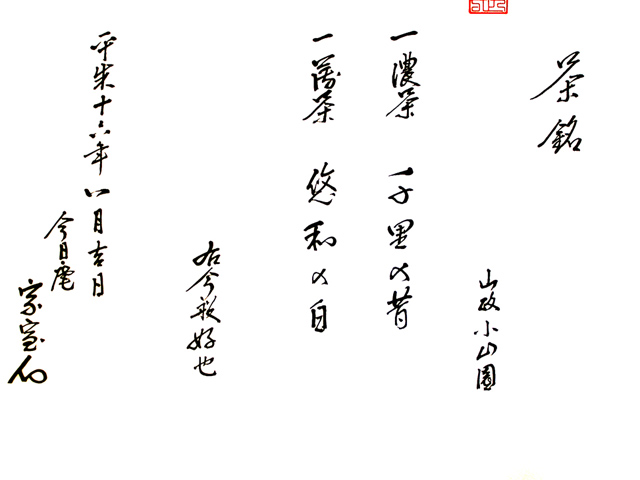 茶銘
山政小山園
一濃茶 千里の昔
一薄茶 悠和の白
右今般好也
平成十六年八月吉日
今日庵
宗室